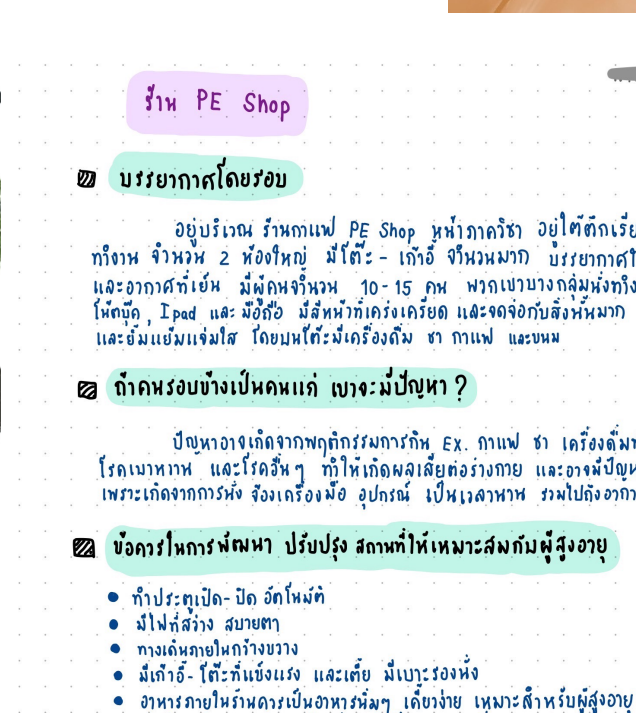 ร้าน PE Shop
บรรยากาศโดยรอบ
อยู่บริเวณ ร้านกาแฟ PE Shop หน้าภาควิชา อยู่ใต้ตึกเรีย
ทำงาน จำนวน 2 ห้องใหญ่ มีโต๊ะ - เก้าอี้ จำนวนมาก บรรยากาศใ
และอากาศที่เย็น มีผู้คนจำนวน 10-15 คน พวกเขาบางกลุ่มนั่งทำง
โน้ตบุ๊ค , Ipad และ มือถือ มีสีหน้าที่เคร่งเครียด และจดจ่อกับสิ่งนั้นมาก
และยิ้มแย้มแจ่มใส โดยบนโต๊ะมีเครื่องดื่ม ชา กาแฟ และขนม
ถ้าคนรอบข้างเป็นคนแก่ เขาจะมีปัญหา ?
ปัญหาอาจเกิดจากพฤติกรรมการกิน Ex. กาแฟ ชา เครื่องดื่มท
โรคเบาหวาน และโรคอื่น ๆ ทำให้เกิดผลเสียต่อร่างกาย และอาจมีปัญห
เพราะเกิดจากการนั่ง จ้องเครื่องมือ อุปกรณ์ เป็นเวลานาน รวมไปถึงอากา
ข้อควรในการพัฒนา ปรับปรุง สถานที่ให้เหมาะสมกับผู้สูงอายุ
ทำประตูเปิด-ปิด อัตโนมัติ
มีไฟที่สว่าง สบายตา
ทางเดินภายในกว้างขวาง
มีเก้าอี้-โต๊ะที่แข็งแรง และเตี้ย มีเบาะรองนั่ง
อาหารภายในร้านควรเป็นอาหารนิ่มๆ เคี้ยวง่าย เหมาะสำหรับผู้สูงอายุ